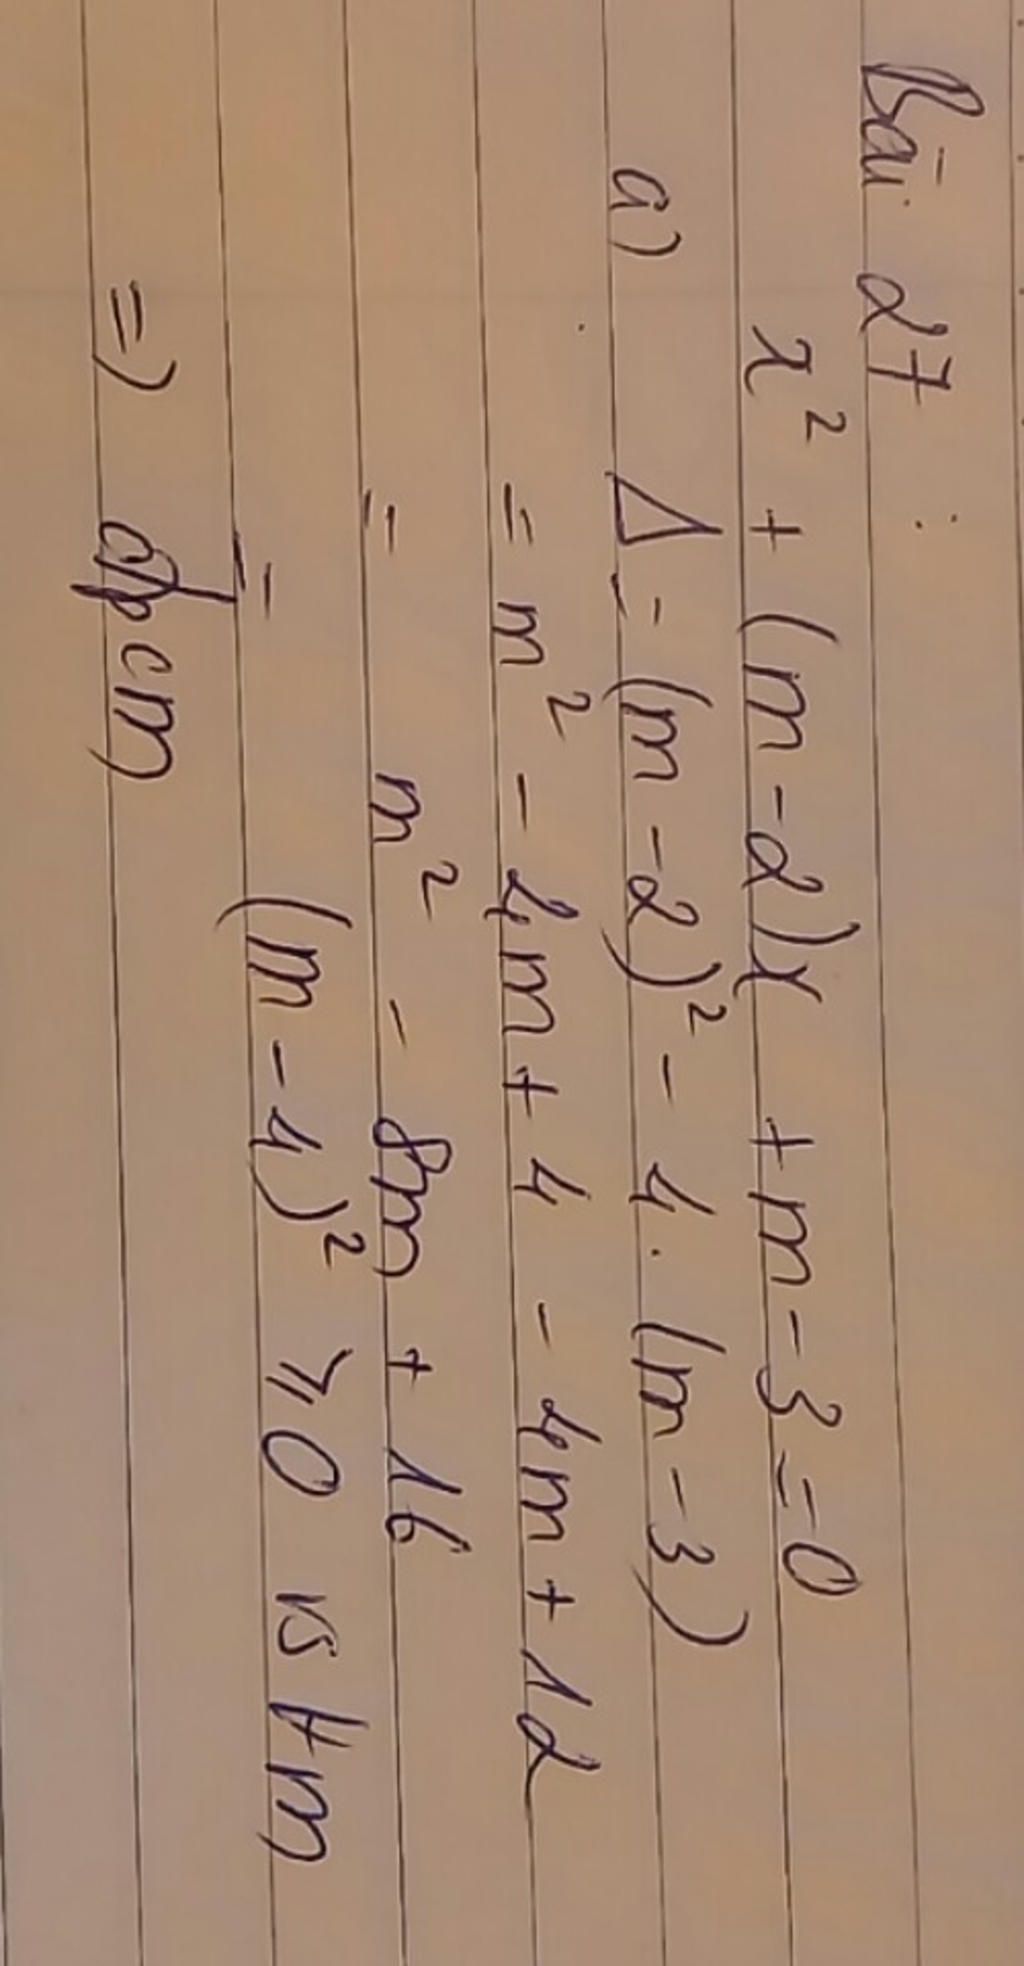 Bài 27 :
x² + (m - 2)x + m - 3 = 0
a) Δ = (m - 2)² - 4 . (m - 3)
= m² - 4m + 4 - 4m + 12
= m² - 8m + 16
= (m - 4)² ⩾ 0 vs ∀m
=> đpcm